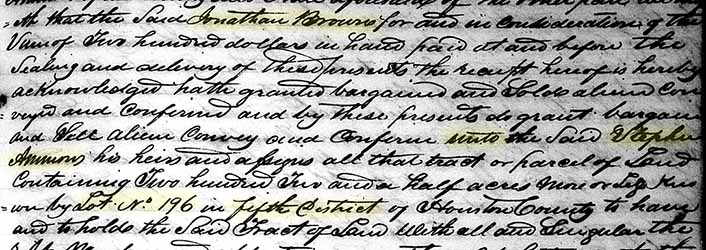 =th that the Said Jonathan Browns for and in Consideration of the
Sum of Two hundred dollars in hand paid at and before the
Sealing and delivery of these presents the receipt hereof is hereby
acknowledged hath granted bargained and Sold alien Con
veyed and Confirmed and by these presents do grant bargain
and Sell alien Convey and Confirm unto the Said Stephen
Ammons his heirs and assigns all that tract or parcel of Land
Containing Two hundred Two and a half acres more or less Kno
=wn by Lot No 196 in fifth District of Houston County to have
and to holds the Said Tract of Land With all and Singular the